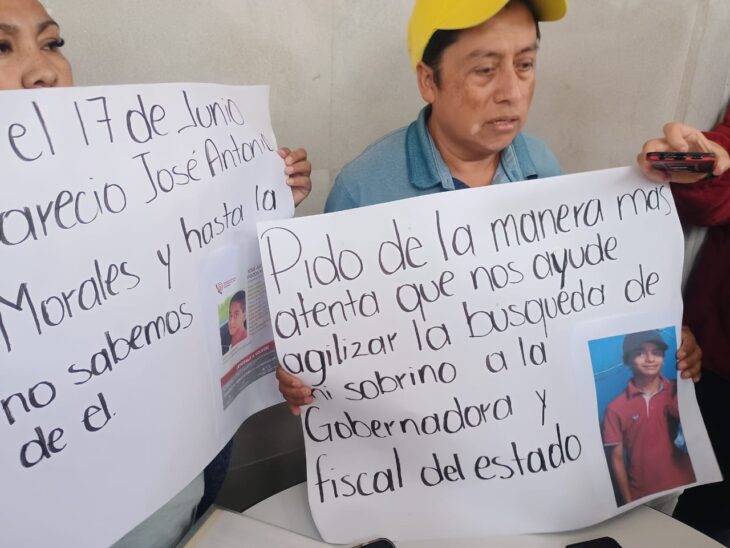 el 17 de Junio
arecio José Antonio
Morales y hasta la
no sabemos
de el.
Pido de la manera mas
atenta que nos ayude
agilizar la busqueda de
mi sobrino a la
Gobernadora y
fiscal del estado